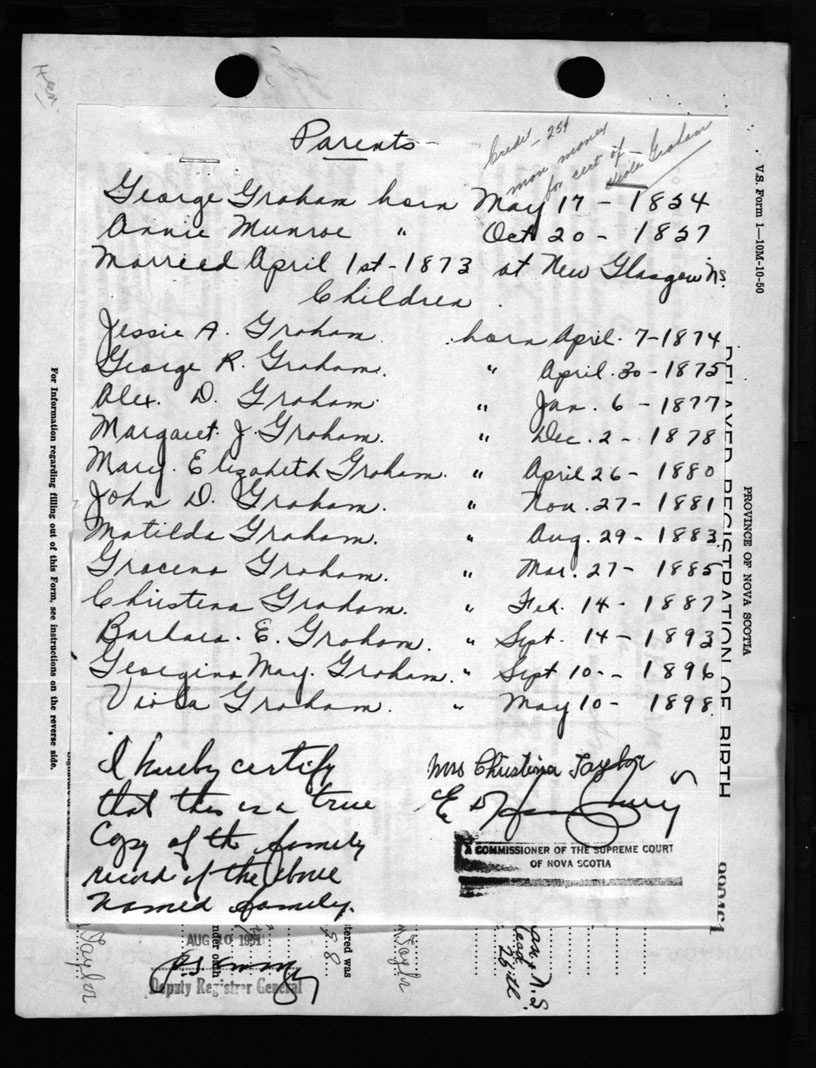 Parents
Credit 25¢
more money
for cert of
Viola Graham
George Graham born May 17 - 1854
Annie Munroe " Oct 20 - 1857
Married April 1st - 1873 at New Glasgow N.S.
Children
Jessie A. Graham. born April. 7-1874
George R. Graham. " April. 30 - 1875
Alex. D. Graham. " Jan. 6 - 1877
Margaret. J. Graham. " Dec. 2 - 1878
Mary. Elizabeth Graham. " April 26 - 1880
John D. Graham. " Nov. 27 - 1881
Matilda Graham. " Aug. 29 - 1883
Gracena Graham. " Mar. 27 - 1885
Christena Graham. " Feb. 14 - 1887
Barbara. E. Graham. " Sept. 14 - 1893
Georgina May. Graham. " Sept 10 - 1896
Viola Graham. " May 10 - 1898.
I hereby certify
that this is a true
Copy of the family
record of the above
named family.
Mrs Christina Taylor
E D
A COMMISSIONER OF THE SUPREME COURT
OF NOVA SCOTIA
AUG 10 1951
Deputy Registrar General
nder oath
tered was
Taylor
Taylor
N.S.
V.S. Form 1—10M-10-50
PROVINCE OF NOVA SCOTIA
DELAYED REGISTRATION OF BIRTH
For Information regarding filling out of this Form, see instructions on the reverse side.